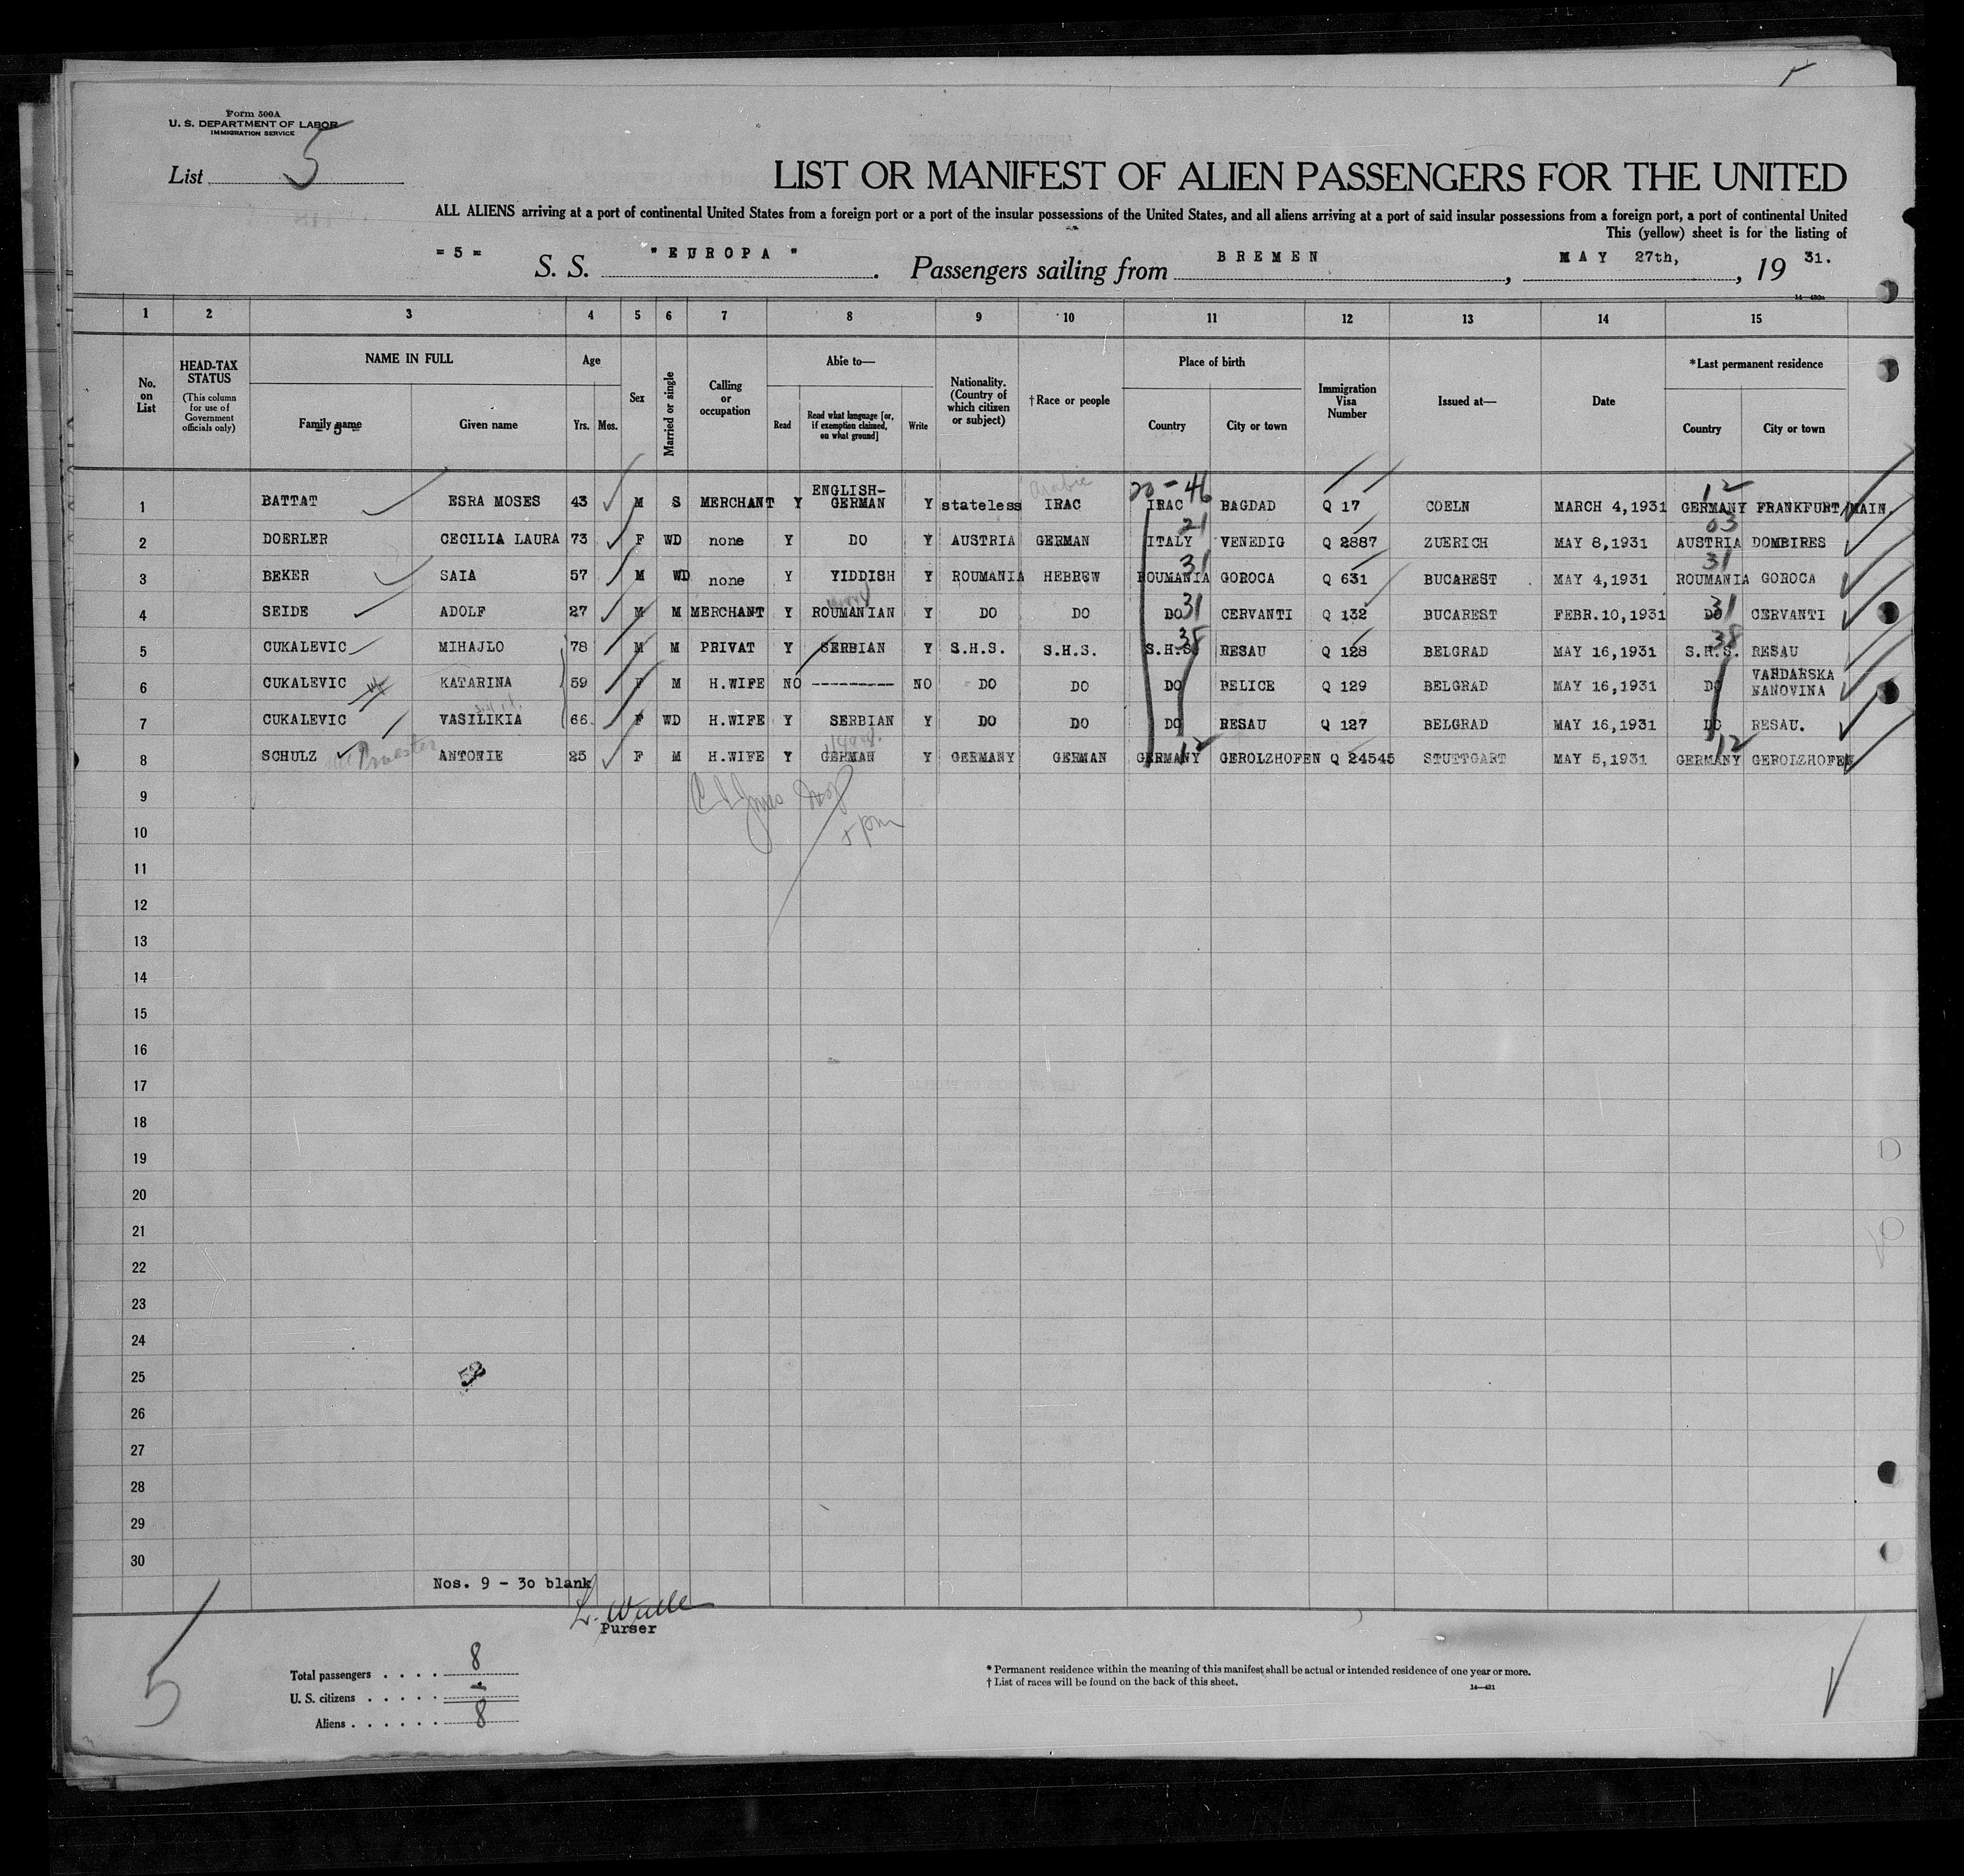 Form 500A
U. S. DEPARTMENT OF LABOR
IMMIGRATION SERVICE
List 5
LIST OR MANIFEST OF ALIEN PASSENGERS FOR THE UNITED
ALL ALIENS arriving at a port of continental United States from a foreign port or a port of the insular possessions of the United States, and all aliens arriving at a port of said insular possessions from a foreign port, a port of continental United
This (yellow) sheet is for the listing of
= 5 = S. S. "EUROPA". Passengers sailing from BREMEN, MAY 27th, 1931.
1 2 3 4 5 6 7 8 9 10 11 12 13 14 15
No. on List
HEAD-TAX STATUS (This column for use of Government officials only)
NAME IN FULL Family name Given name
Age Yrs. Mos.
Sex
Married or single
Calling or occupation
Able to— Read Read what language [or, if exemption claimed, on what ground] Write
Nationality. (Country of which citizen or subject)
†Race or people
Place of birth Country City or town
Immigration Visa Number
Issued at—
Date
*Last permanent residence Country City or town
1 BATTAT ESRA MOSES 43 M S MERCHANT Y ENGLISH-GERMAN Y stateless Arabic IRAC 20-46 IRAC BAGDAD Q 17 COELN MARCH 4,1931 12 GERMANY FRANKFURT/MAIN.
2 DOERLER CECILIA LAURA 73 F WD none Y DO Y AUSTRIA GERMAN 21 ITALY VENEDIG Q 2887 ZUERICH MAY 8,1931 03 AUSTRIA DOMBIRES
3 BEKER SAIA 57 M WD none Y YIDDISH Y ROUMANIA HEBREW 31 ROUMANIA GOROCA Q 631 BUCAREST MAY 4,1931 31 ROUMANIA GOROCA
4 SEIDE ADOLF 27 M M MERCHANT Y ROUMANIAN Y DO DO DO 31 CERVANTI Q 132 BUCAREST FEBR.10,1931 31 DO CERVANTI
5 CUKALEVIC MIHAJLO 78 M M PRIVAT Y SERBIAN Y S.H.S. S.H.S. 38 S.H.S. RESAU Q 128 BELGRAD MAY 16,1931 38 S.H.S. RESAU
6 CUKALEVIC KATARINA 59 F M H.WIFE NO --------- NO DO DO DO BELICE Q 129 BELGRAD MAY 16,1931 DO VARDARSKA BANOVINA
7 CUKALEVIC VASILIKIA 66 F WD H.WIFE Y SERBIAN Y DO DO DO RESAU Q 127 BELGRAD MAY 16,1931 DO RESAU.
8 SCHULZ ANTONIE 25 F M H.WIFE Y GERMAN Y GERMANY GERMAN 12 GERMANY GEROLZHOFEN Q 24545 STUTTGART MAY 5,1931 12 GERMANY GEROLZHOFEN
9
10
11
12
13
14
15
16
17
18
19
20
21
22
23
24
25
26
27
28
29
30
Nos. 9 - 30 blank
Purser
Total passengers . . . . 8
U. S. citizens . . . . . -
Aliens . . . . . . 8
5
* Permanent residence within the meaning of this manifest shall be actual or intended residence of one year or more.
† List of races will be found on the back of this sheet.
14—431